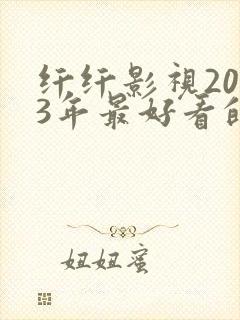 纤纤影視20
3年最好看的
妞妞蜜